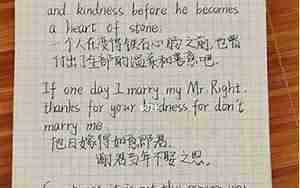 and kindness before he becomes
a heart of stone.
一个人在变得铁石心肠之前,也曾
付出了全部的温柔和善意吧.
If one day I marry my Mr. Right.
thanks for your kindness for don't
marry me.
他日嫁得如意郎君.
谢君当年不娶之恩.